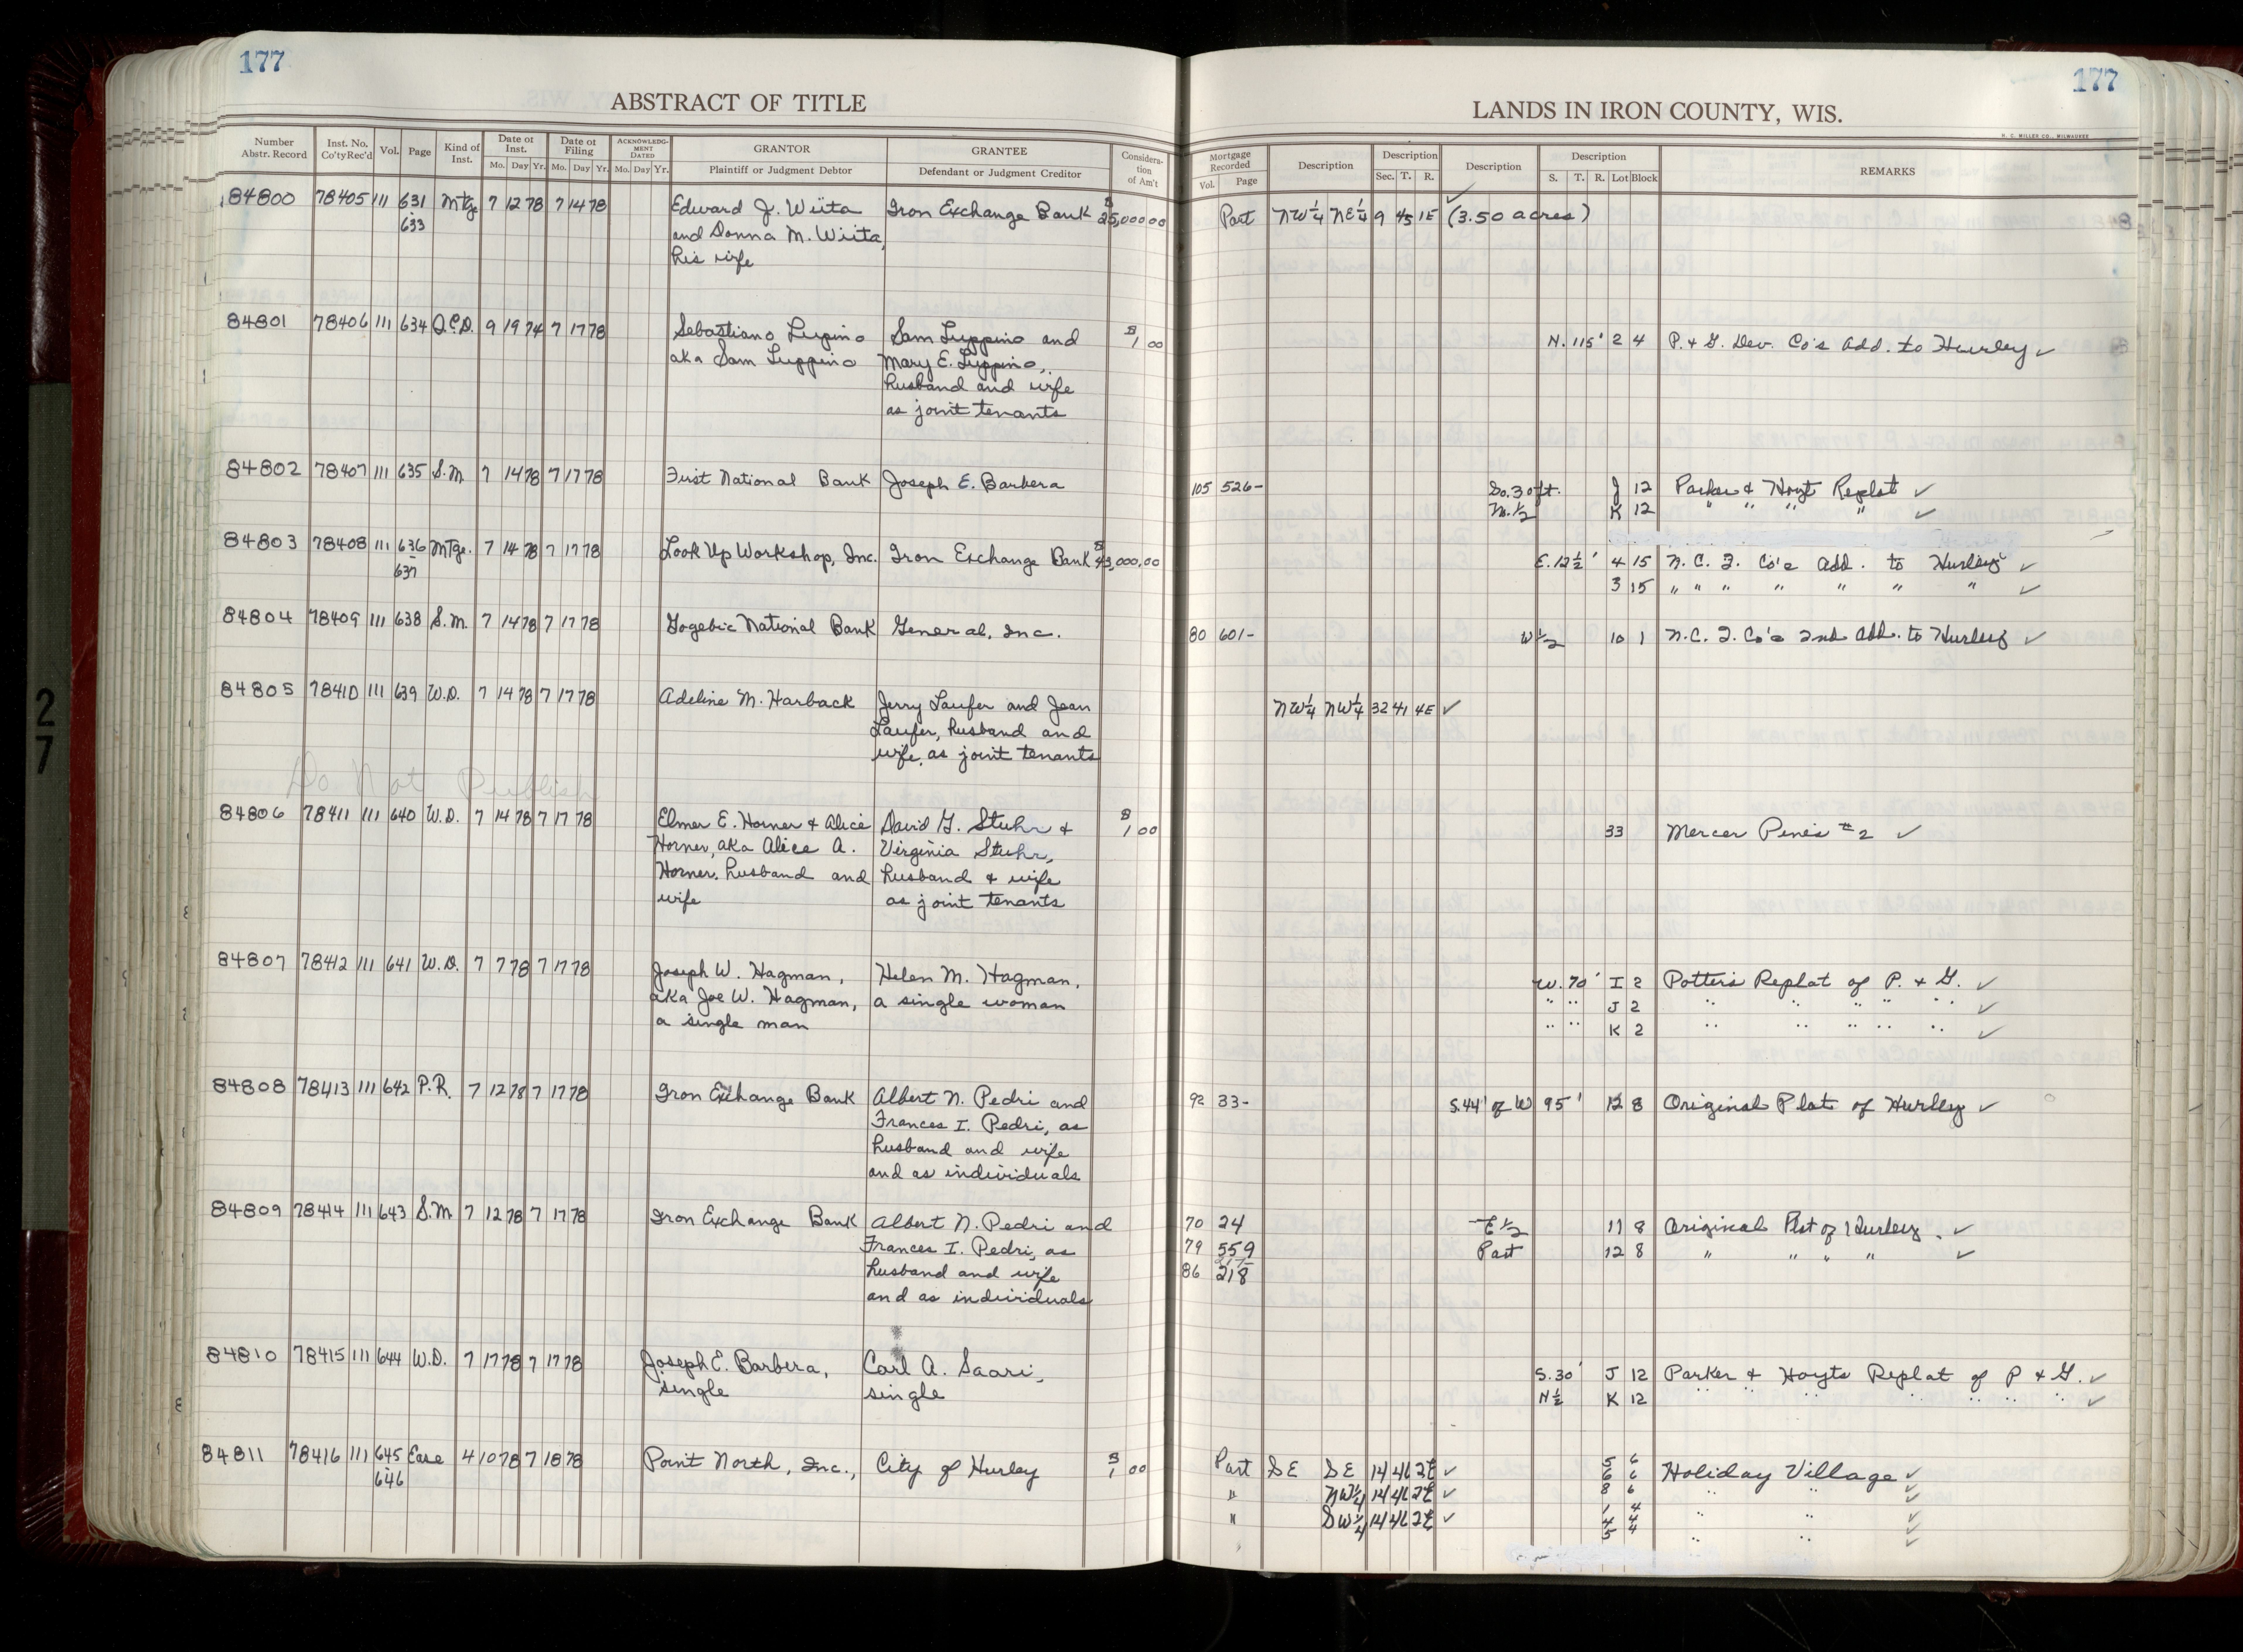 177
177
ABSTRACT OF TITLE
LANDS IN IRON COUNTY, WIS.
H. C. MILLER CO., MILWAUKEE
Number Abstr. Record | Inst. No. Co'ty Rec'd | Vol. | Page | Kind of Inst. | Date of Inst. Mo. Day Yr. | Date of Filing Mo. Day Yr. | ACKNOWLEDGMENT DATED Mo. Day Yr. | GRANTOR Plaintiff or Judgment Debtor | GRANTEE Defendant or Judgment Creditor | Consideration of Am't | Mortgage Recorded Vol. Page | Description | Description Sec. T. R. | Description | Description S. T. R. Lot Block | REMARKS
84800 78405 111 631 Mtge 7 12 78 7 14 78 Edward J. Wiita Iron Exchange Bank $25,000 00 Part NW¼ NE¼ 9 45 1E ✓ (3.50 acres)
- 633 and Donna M. Wiita,
his wife
84801 78406 111 634 Q.C.D. 9 19 74 7 17 78 Sebastiano Lupino Sam Luppino and $1 00 N. 115' 2 4 P. & G. Dev. Co's Add. to Hurley ✓
aka Sam Luppino Mary E. Luppino,
husband and wife
as joint tenants
84802 78407 111 635 S.M. 7 14 78 7 17 78 First National Bank Joseph E. Barbera 105 526- So. 30 ft. J 12 Parker & Hoyt Replat ✓
No. ½ K 12 " " " " ✓
84803 78408 111 636 Mtge. 7 14 78 7 17 78 Look Up Workshop, Inc. Iron Exchange Bank $43,000.00 E. 12½' 4 15 N. C. I. Co's Add. to Hurley ✓
- 637 3 15 " " " " " " " ✓
84804 78409 111 638 S.M. 7 14 78 7 17 78 Gogebic National Bank General, Inc. 80 601- W½ 10 1 N.C. I. Co's 2nd Add. to Hurley ✓
84805 78410 111 639 W.D. 7 14 78 7 17 78 Adeline M. Harback Jerry Laufer and Jean NW¼ NW¼ 32 41 4E ✓
Laufer, husband and
wife, as joint tenants
Do Not Publish
84806 78411 111 640 W.D. 7 14 78 7 17 78 Elmer E. Horner & Alice David G. Stuhr & $1 00 33 Mercer Pines #2 ✓
Horner, aka Alice A. Virginia Stuhr,
Horner, husband and husband & wife
wife as joint tenants
84807 78412 111 641 W.D. 7 7 78 7 17 78 Joseph W. Hagman, Helen M. Hagman, W. 70' I 2 Potter's Replat of P. & G. ✓
aka Joe W. Hagman, a single woman " " J 2 " " " " " ✓
a single man " " K 2 " " " " " ✓
84808 78413 111 642 P.R. 7 12 78 7 17 78 Iron Exchange Bank Albert N. Pedri and 92 33- S. 44' of W 95' 12 8 Original Plat of Hurley ✓
Frances I. Pedri, as
husband and wife
and as individuals
84809 78414 111 643 S.M. 7 12 78 7 17 78 Iron Exchange Bank Albert N. Pedri and 70 24 E½ 11 8 Original Plat of Hurley. ✓
Frances I. Pedri, as 79 559 Part 12 8 " " " " ✓
husband and wife 86 218
and as individuals
84810 78415 111 644 W.D. 7 17 78 7 17 78 Joseph E. Barbera, Carl A. Saari, S. 30' J 12 Parker & Hoyts Replat of P & G. ✓
single single N½ K 12 " " " " " " " ✓
84811 78416 111 645 Ease 4 10 78 7 18 78 Point North, Inc., City of Hurley $1 00 Part SE SE 14 46 2E ✓ 5 6
- 646 6 6 Holiday Village ✓
" NW¼ 14 46 2E ✓ 8 6 " " ✓
" SW¼ 14 46 2E ✓ 1 4 " " ✓
4 4 ✓
5 4 " " ✓
27